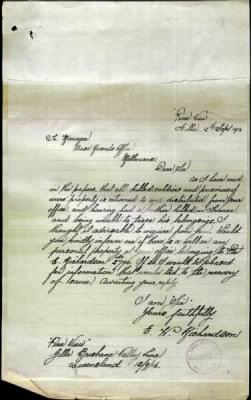 Pine View
12th Sept 1916
The Manager
Base Records Office
Melbourne
Dear Sir
As I have read
in the papers, that all killed soldiers and prisoners of
wars property is returned to and distributed from your
office, and having had a brother killed in France
and being unable to trace his belongings, I
thought it advisable to inquire from them. Would
you kindly inform me if there is a will or any
personal property of his belonging to
E. Richardson If so I would be pleased
for information that would lead to the recovery
of same. Awaiting your reply
I am Sir
Yours faithfully
E. W. Richardson
"Pine View"
Brisbane Valley Line
Queensland 12/9/16.